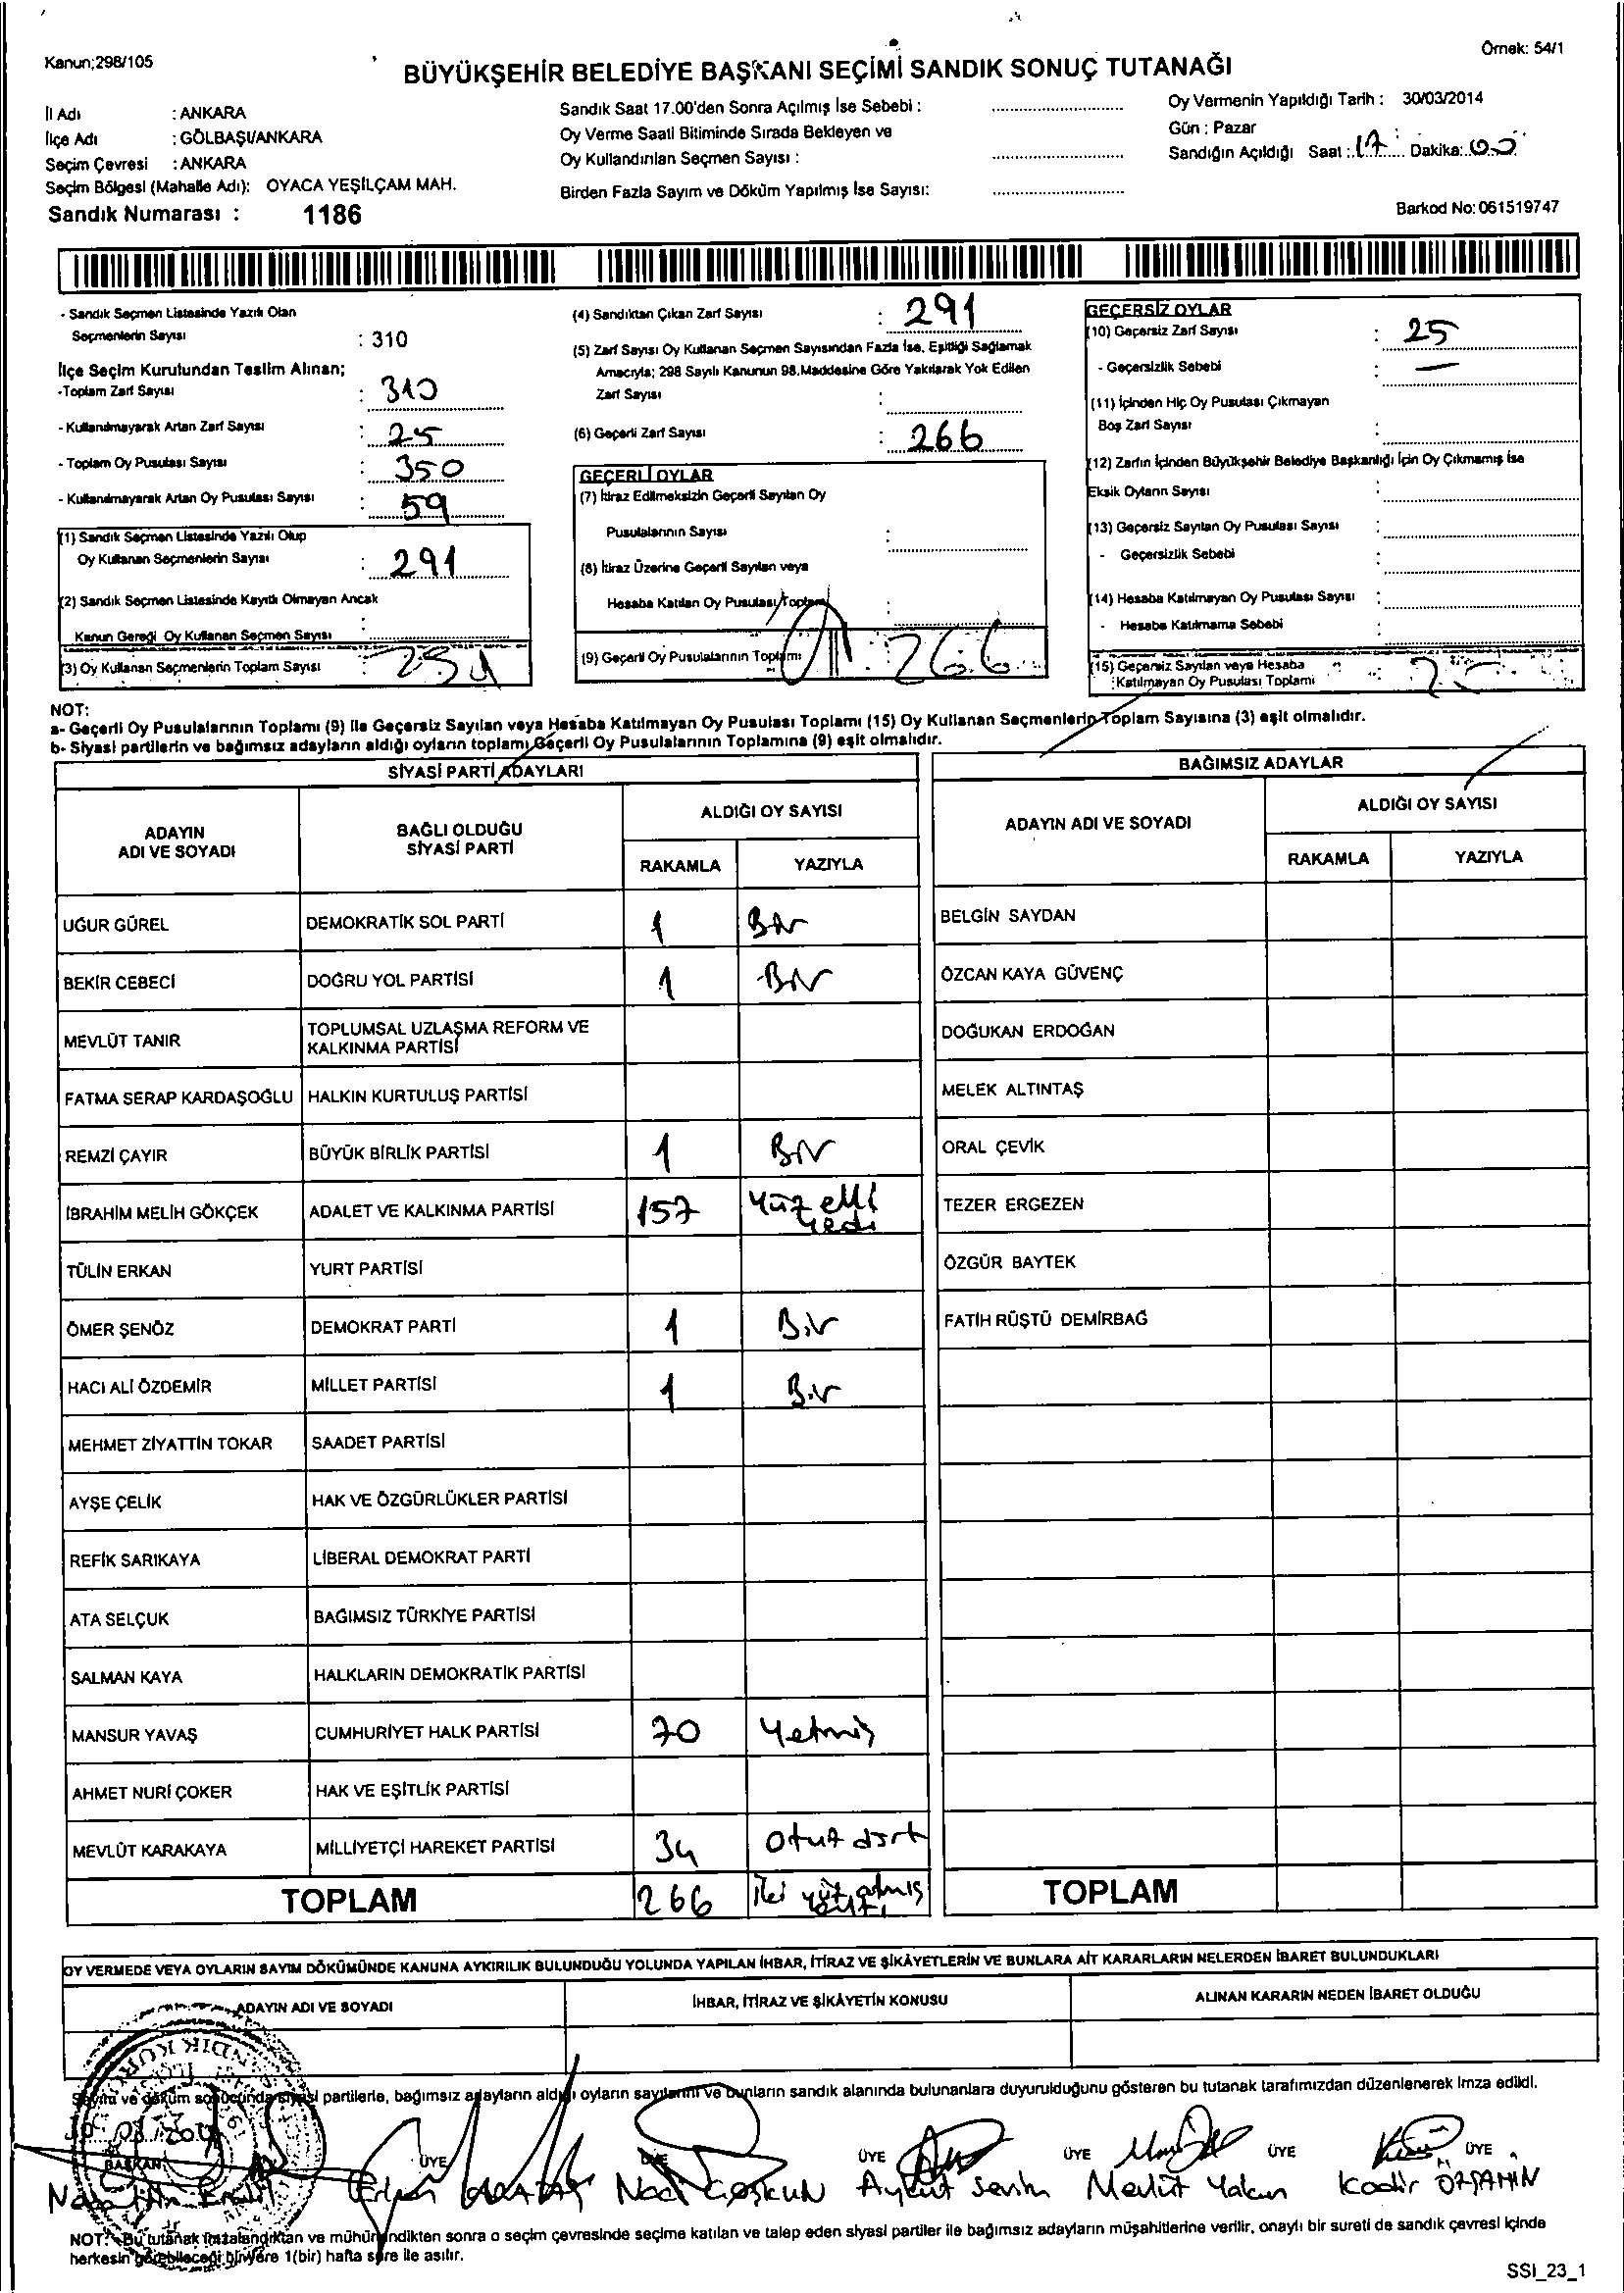 Kanun;298/105
Örnek: 54/1
BÜYÜKŞEHİR BELEDİYE BAŞKANI SEÇİMİ SANDIK SONUÇ TUTANAĞI
İl Adı : ANKARA
İlçe Adı : GÖLBAŞI/ANKARA
Seçim Çevresi : ANKARA
Seçim Bölgesi (Mahalle Adı): OYACA YEŞİLÇAM MAH.
Sandık Numarası : 1186
Sandık Saat 17.00'den Sonra Açılmış İse Sebebi :
Oy Verme Saati Bitiminde Sırada Bekleyen ve
Oy Kullandırılan Seçmen Sayısı :
Birden Fazla Sayım ve Döküm Yapılmış İse Sayısı:
Oy Vermenin Yapıldığı Tarih : 30/03/2014
Gün : Pazar
Sandığın Açıldığı Saat : 17 Dakika: 00
Barkod No: 061519747
- Sandık Seçmen Listesinde Yazılı Olan
Seçmenlerin Sayısı : 310
İlçe Seçim Kurulundan Teslim Alınan;
-Toplam Zarf Sayısı : 310
- Kullanılmayarak Artan Zarf Sayısı : 25
- Toplam Oy Pusulası Sayısı : 350
- Kullanılmayarak Artan Oy Pusulası Sayısı : 59
(1) Sandık Seçmen Listesinde Yazılı Olup
Oy Kullanan Seçmenlerin Sayısı : 291
(2) Sandık Seçmen Listesinde Kayıtlı Olmayan Ancak
Kanun Gereği Oy Kullanan Seçmen Sayısı :
(3) Oy Kullanan Seçmenlerin Toplam Sayısı :
(4) Sandıktan Çıkan Zarf Sayısı : 291
(5) Zarf Sayısı Oy Kullanan Seçmen Sayısından Fazla İse, Eşitliği Sağlamak
Amacıyla; 298 Sayılı Kanunun 98.Maddesine Göre Yakılarak Yok Edilen
Zarf Sayısı :
(6) Geçerli Zarf Sayısı : 266
GEÇERLİ OYLAR
(7) İtiraz Edilmeksizin Geçerli Sayılan Oy
Pusulalarının Sayısı :
(8) İtiraz Üzerine Geçerli Sayılan veya
Hesaba Katılan Oy Pusulası Toplamı :
(9) Geçerli Oy Pusulalarının Toplamı : 266
GEÇERSİZ OYLAR
(10) Geçersiz Zarf Sayısı : 25
- Geçersizlik Sebebi : —
(11) İçinden Hiç Oy Pusulası Çıkmayan
Boş Zarf Sayısı :
(12) Zarfın İçinden Büyükşehir Belediye Başkanlığı İçin Oy Çıkmamış İse
Eksik Oyların Sayısı :
(13) Geçersiz Sayılan Oy Pusulası Sayısı :
- Geçersizlik Sebebi :
(14) Hesaba Katılmayan Oy Pusulası Sayısı :
- Hesaba Katılmama Sebebi :
(15) Geçersiz Sayılan veya Hesaba
Katılmayan Oy Pusulası Toplamı : 25
NOT:
a- Geçerli Oy Pusulalarının Toplamı (9) ile Geçersiz Sayılan veya Hesaba Katılmayan Oy Pusulası Toplamı (15) Oy Kullanan Seçmenlerin Toplam Sayısına (3) eşit olmalıdır.
b- Siyasi partilerin ve bağımsız adayların aldığı oyların toplamı Geçerli Oy Pusulalarının Toplamına (9) eşit olmalıdır.
SİYASİ PARTİ ADAYLARI
ADAYIN ADI VE SOYADI BAĞLI OLDUĞU SİYASİ PARTİ ALDIĞI OY SAYISI
RAKAMLA YAZIYLA
UĞUR GÜREL DEMOKRATİK SOL PARTİ 1 Bir
BEKİR CEBECİ DOĞRU YOL PARTİSİ 1 Bir
MEVLÜT TANIR TOPLUMSAL UZLAŞMA REFORM VE
KALKINMA PARTİSİ
FATMA SERAP KARDAŞOĞLU HALKIN KURTULUŞ PARTİSİ
REMZİ ÇAYIR BÜYÜK BİRLİK PARTİSİ 1 Bir
İBRAHİM MELİH GÖKÇEK ADALET VE KALKINMA PARTİSİ 157 Yüz elli yedi
TÜLİN ERKAN YURT PARTİSİ
ÖMER ŞENÖZ DEMOKRAT PARTİ 1 Bir
HACI ALİ ÖZDEMİR MİLLET PARTİSİ 1 Bir
MEHMET ZİYATTİN TOKAR SAADET PARTİSİ
AYŞE ÇELİK HAK VE ÖZGÜRLÜKLER PARTİSİ
REFİK SARIKAYA LİBERAL DEMOKRAT PARTİ
ATA SELÇUK BAĞIMSIZ TÜRKİYE PARTİSİ
SALMAN KAYA HALKLARIN DEMOKRATİK PARTİSİ
MANSUR YAVAŞ CUMHURİYET HALK PARTİSİ 70 Yetmiş
AHMET NURİ ÇOKER HAK VE EŞİTLİK PARTİSİ
MEVLÜT KARAKAYA MİLLİYETÇİ HAREKET PARTİSİ 34 Otuz dört
TOPLAM 266 İki yüz atmış altı
BAĞIMSIZ ADAYLAR
ADAYIN ADI VE SOYADI ALDIĞI OY SAYISI
RAKAMLA YAZIYLA
BELGİN SAYDAN
ÖZCAN KAYA GÜVENÇ
DOĞUKAN ERDOĞAN
MELEK ALTINTAŞ
ORAL ÇEVİK
TEZER ERGEZEN
ÖZGÜR BAYTEK
FATİH RÜŞTÜ DEMİRBAĞ
TOPLAM
OY VERMEDE VEYA OYLARIN SAYIM DÖKÜMÜNDE KANUNA AYKIRILIK BULUNDUĞU YOLUNDA YAPILAN İHBAR, İTİRAZ VE ŞİKÂYETLERİN VE BUNLARA AİT KARARLARIN NELERDEN İBARET BULUNDUKLARI
ADAYIN ADI VE SOYADI İHBAR, İTİRAZ VE ŞİKÂYETİN KONUSU ALINAN KARARIN NEDEN İBARET OLDUĞU
Sayım ve döküm sonucunda siyasi partilerle, bağımsız adayların aldığı oyların sayılarını ve bunların sandık alanında bulunanlara duyurulduğunu gösteren bu tutanak tarafımızdan düzenlenerek imza edildi.
BAŞKAN ÜYE ÜYE ÜYE ÜYE ÜYE ÜYE
Naci COŞKUN Aykut Sevim Mevlüt Yakın Kadir ÖZŞAHİN
NOT: Bu tutanak imzalandıktan ve mühürlendikten sonra o seçim çevresinde seçime katılan ve talep eden siyasi partiler ile bağımsız adayların müşahitlerine verilir, onaylı bir sureti de sandık çevresi içinde
herkesin görebileceği bir yere 1(bir) hafta süre ile asılır.
SSI_23_1